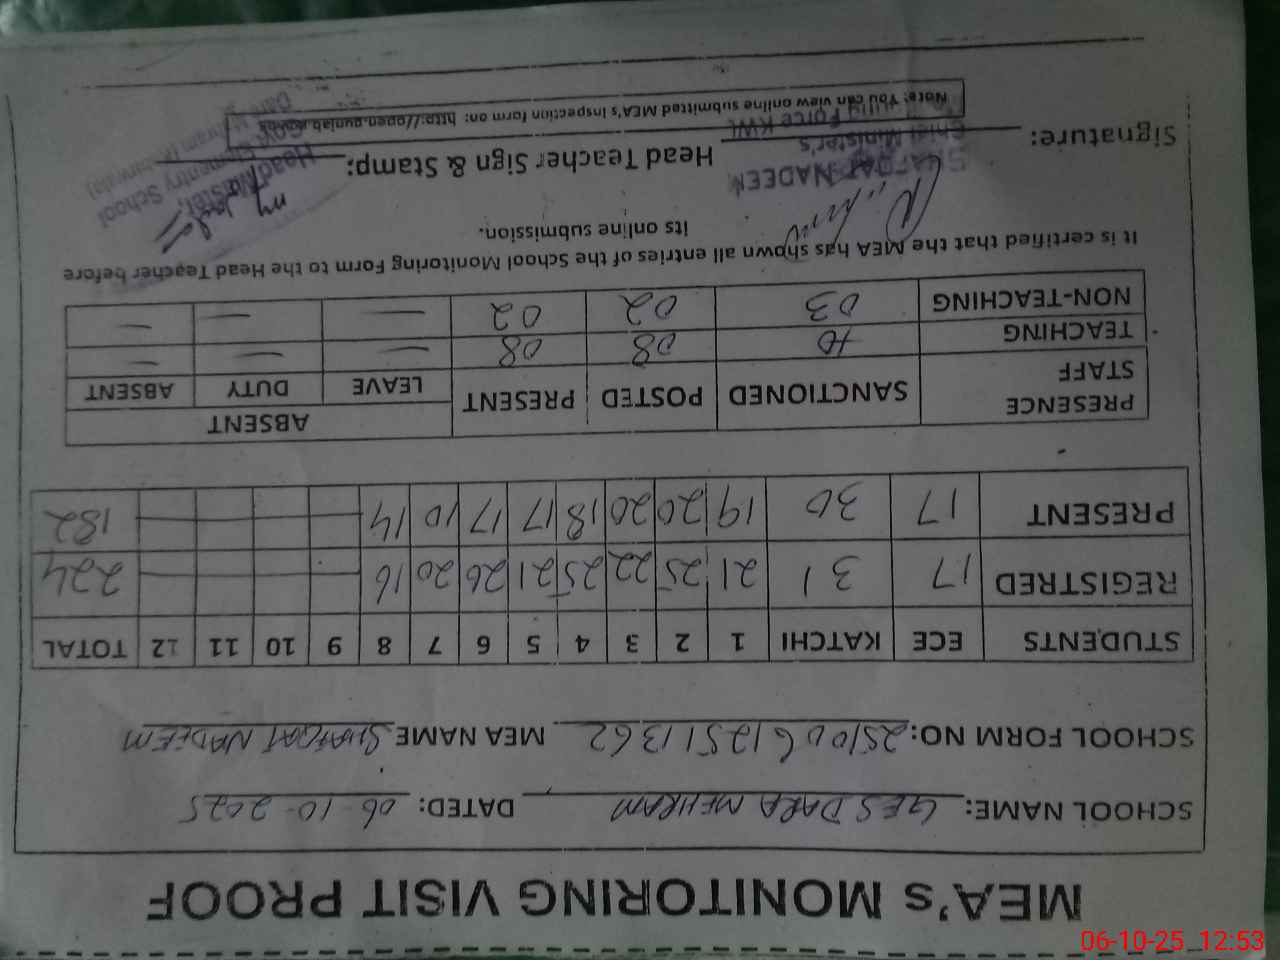 MEA's MONITORING VISIT PROOF
SCHOOL NAME: GES DARA MEHRAM DATED: 06-10-2025
SCHOOL FORM NO: 25100612511362 MEA NAME SHAFQAT NADEEM
STUDENTS ECE KATCHI 1 2 3 4 5 6 7 8 9 10 11 12 TOTAL
REGISTRED 17 31 21 25 22 25 21 26 20 16 224
PRESENT 17 30 19 20 20 18 17 17 10 14 182
PRESENCE STAFF SANCTIONED POSTED PRESENT ABSENT
LEAVE DUTY ABSENT
TEACHING 08 08 — — —
NON-TEACHING 03 02 02 — — —
It is certified that the MEA has shown all entries of the School Monitoring Form to the Head Teacher before
its online submission.
SHAFQAT NADEEM
Chief Minister's
Force KWL
Head Master,
Elementry School
Signature: Head Teacher Sign & Stamp:
Note: You can view online submitted MEA's inspection form on: http://open.punjab.gov.pk
06-10-25 12:53